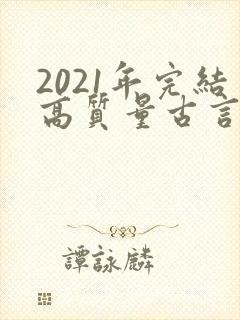 2021年完結
高質量古言
譚詠麟